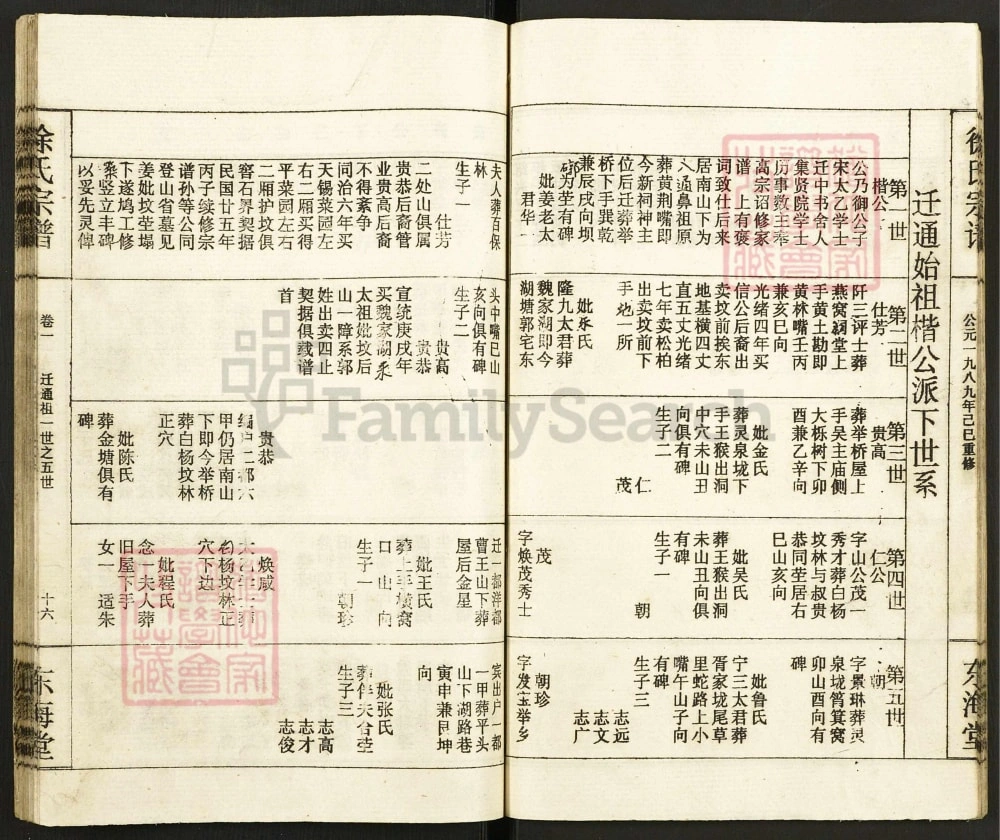 徐氏宗谱
公元一九八九年己巳重修
东海堂
迁通始祖楷公派下世系
第一世
楷公
公乃御公子
宋太乙学士
迁中书舍人
集贤院学士
历事数主奉
高宗诏修家
谱谱上有褒
词致仕后来
居南山下为
通鼻祖原
葬黄荆嘴即
今新祠神主
位后迁葬举
桥下手巽乾
兼辰戌向坝
为茔有碑
妣姜老太
君华一
夫人葬百保
林
生子一
仕芳
二处山俱属
贵恭后裔管
业贵高后裔
不得紊争
同治六年买
天锡菜园左
右二厢买得
平菜园左右
二厢护坟俱
窖石界契据
民国廿五年
丙子续修宗
谱孙等公同
登山省墓见
姜妣坟茔塌
下遂鸠工修
砌竖立丰碑
以妥先灵傅
第二世
仕芳
阡三评士葬
燕窝洞堂上
手黄土勘即
黄林嘴壬丙
兼亥巳向
光绪四年买
信公后裔出
卖坟前挨东
地基横四丈
直五丈光绪
七年卖松柏
出卖坟前下
手地一所
妣承氏
隆九太君葬
魏家湖即今
湖塘郭宅东
头中嘴巳山
亥向俱有碑
生子二
贵高
贵恭
宣统庚戌年
买魏家湖承
太祖妣坟后
山一障系郭
姓出卖四止
契据俱载谱
首
第三世
贵高
葬举桥屋上
手吴主庙侧
大栎树下卯
酉兼乙辛向
妣金氏
葬灵泉垅下
手王猴出洞
中穴未山丑
向俱有碑
生子二
仁
茂
贵恭
编户二都六
甲仍居南山
下即今举桥
葬白杨坟林
正穴
妣陈氏
葬金塘俱有
碑
第四世
仁公
字山公茂一
秀才葬白杨
坟林与叔贵
恭同茔居右
巳山亥向
妣吴氏
葬王猴出洞
未山丑向俱
有碑
生子一
朝
茂
字焕茂秀士
迁一都洋都
曹王山下葬
屋后金星
妣王氏
葬上手横窝
口山向
生子一
朝珍
焕咸
白杨坟林正
穴下边
妣程氏
念一夫人葬
旧屋下手
女一 适朱
第五世
朝
字景琳葬灵
泉垅筲箕窝
卯山酉向有
碑
妣鲁氏
宁三太君葬
胥家垅尾草
里蛇路上小
嘴午山子向
有碑
生子三
志远
志文
志广
朝珍
字发宝举乡
宾出户一都
一甲葬平头
山下湖路巷
寅申兼艮坤
向
妣张氏
葬伴夫合茔
生子三
志高
志才
志俊
徐氏宗谱
卷一 迁通祖一世之五世
十六
东海堂
FamilySearch